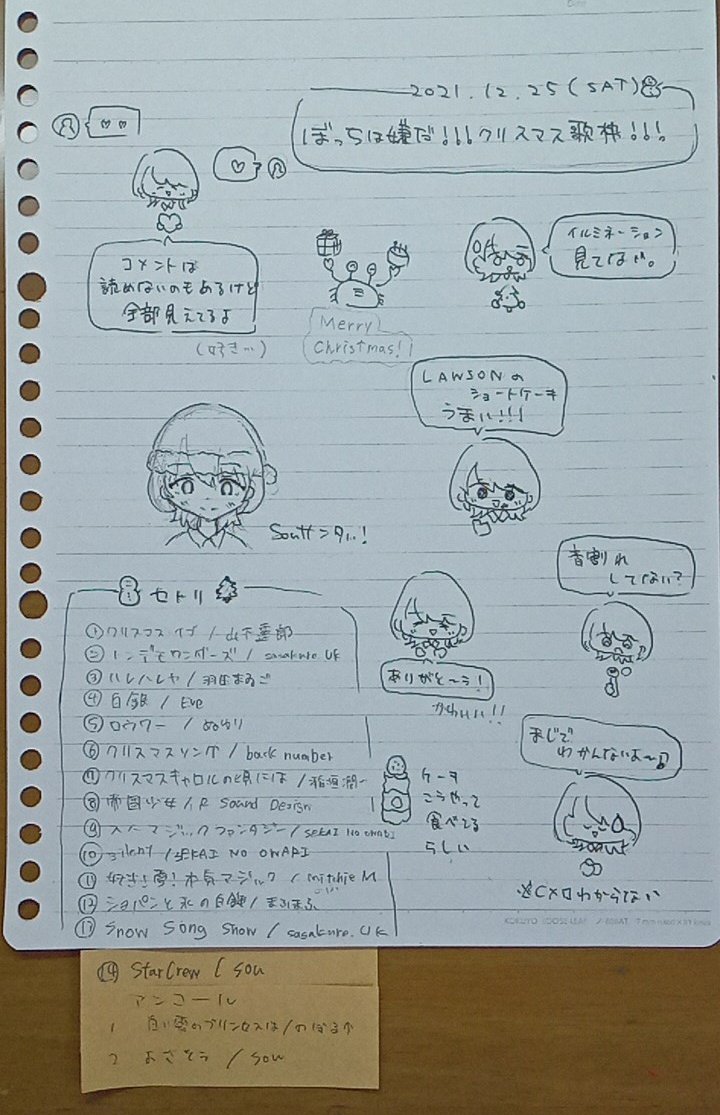 2021.12.25 (SAT)
ぼっちは嫌だ!!!クリスマス歌枠!!!
コメントは
読めないのもあるけど
全部見えてるよ
(好き…)
Merry
Christmas!
イルミネーション
見てない。
LAWSONの
ショートケーキ
うまい!!!
Souサンタだ!
音割れ
してない?
ありがと〜う!
かわいい!!
まじで
わかんないよ〜
※CメロわからないKOKUYO LOOSE-LEAF
ケーキ
こうやって
食べてる
らしい
セトリ
①クリスマスイブ/山下達郎
②トンデモワンダーズ/sasakure.UK
③ハレハレヤ/羽生まゐご
④白銀/Eve
⑤ロウワー/ぬゆり
⑥クリスマスソング/back number
⑦クリスマスキャロルの頃には/稲垣潤一
⑧帝国少女/R Sound Design
⑨スノーマジックファンタジー/SEKAI NO OWARI
⑩silent/SEKAI NO OWARI
⑪好き!雪!本気マジック/Mitchie M
⑫ショパンと氷の白鍵/まふまふ
⑬Snow Song Show/sasakure.UK
⑭StarCrew/Sou
アンコール
1 白い雪のプリンセスは/のぼる↑
2 よぞそう/Sou